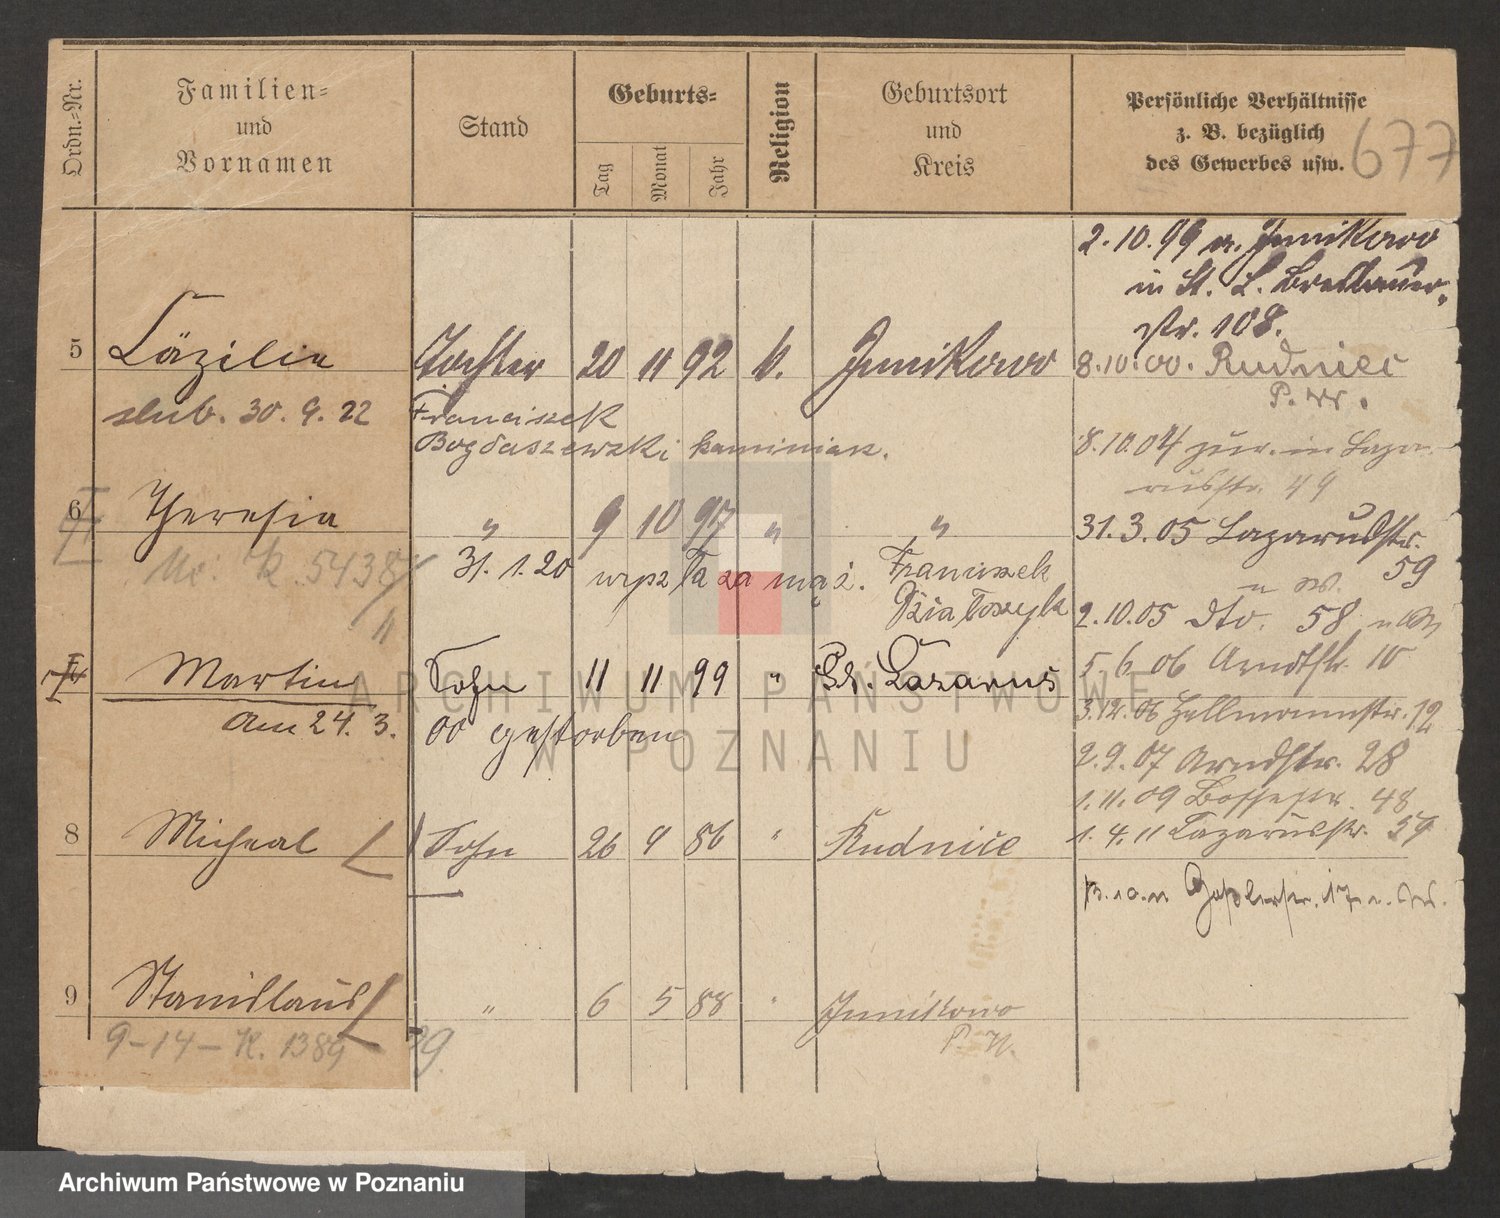 Ordn.-Nr.
Familien-
und
Vornamen
Stand
Geburts-
Tag
Monat
Jahr
Religion
Geburtsort
und
Kreis
Persönliche Verhältnisse
z. B. bezüglich
des Gewerbes usw.
677
2.10.99 v. Junikowo
in St. L. Breslauer-
str. 108.
5 Cäzilie Tochter 20 11 92 k. Junikowo
8.10.00. Rudnicc
P. W.
slub. 30. 9. 22 Franciszek
Bogdaszewski kaminiarz.
8.10.04 zur. in Laza-
russtr. 49
6 Theresia " 9 10 97 " "
31.3.05 Lazarusstr.
59
K. 5438/
11
31. 1. 20 wyszła za mąż. Franciszek
2.10.05 dto. 58
Martin Sohn 11 11 99 " St. Lazarus
5.6.06 Arndtstr. 10
Am 24. 3. 00 gestorben
3.12.06 Hellmannstr. 12
2.9.07 Arndtstr. 28
1.11.09 48
8 Micheal Sohn 26 9 86 " Rudnice
1.4.11 Lazarusstr. 59
Goßlerstr. 17
9 Stanislaus " 6 5 88 " Junikowo
P. W.
9-14-K. 1389
ARCHIWUM PAŃSTWOWE
W POZNANIU
Archiwum Państwowe w Poznaniu